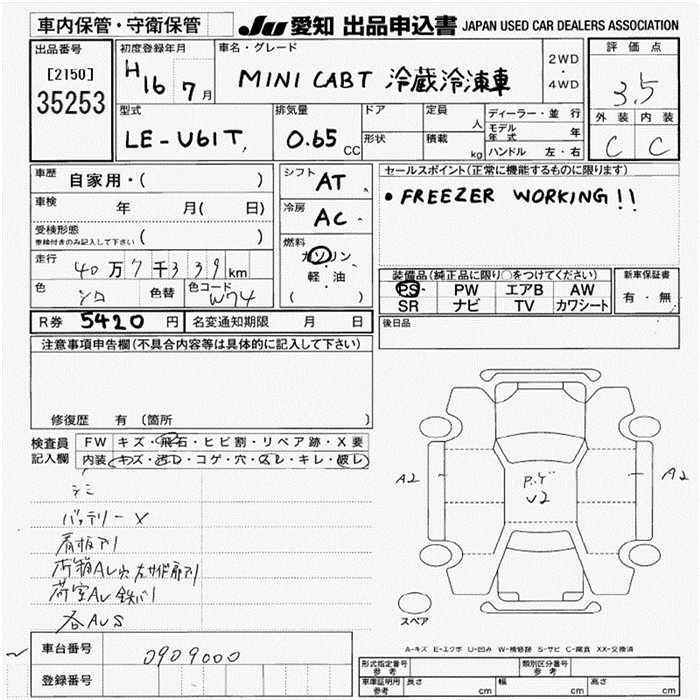 車内保管・守衛保管
JU 愛知 出品申込書 JAPAN USED CAR DEALERS ASSOCIATION
出品番号
[2150]
35253
初度登録年月
H 16 7月
車名・グレード
MINI CABT 冷蔵冷凍車
2WD
・
4WD
評価点
3.5
外装 内装
C C
型式
LE-U61T,
排気量
0.65 CC
ドア
形状
定員
人
積載
kg
ディーラー・並行
モデル年式 年
ハンドル 左・右
車歴 自家用・( )
車検 年 月( 日)
受検形態
車検付きのみ記入して下さい ( )
走行 40万7千339km
色 シロ 色替 色コード W74
R券 5420円 名変通知期限 月 日
シフト AT
冷房 AC
燃料
ガソリン
・
軽・油
( )
セールスポイント(正常に機能するものに限ります)
• FREEZER WORKING!!
装備品(純正品に限り○をつけてください)
PS PW エアB AW
SR ナビ TV カワシート
新車保証書
有・無
後日品
注意事項申告欄(不具合内容等は具体的に記入して下さい)
修復歴 有(箇所 )
検査員
記入欄
FW キズ・飛石・ヒビ割・リペア跡・X要
内装 キズ・汚レ・コゲ・穴・スレ・キレ・破レ
バッテリーX
A2
P.ゲ
U2
A2
スペア
A-キズ E-エクボ U-凹み W-補修跡 S-サビ C-腐食 XX-交換済
車台番号 0909000
登録番号
形式指定番号
参考
類別区分番号
参考
車庫証明用
参考
長さ cm 幅 cm 高さ cm